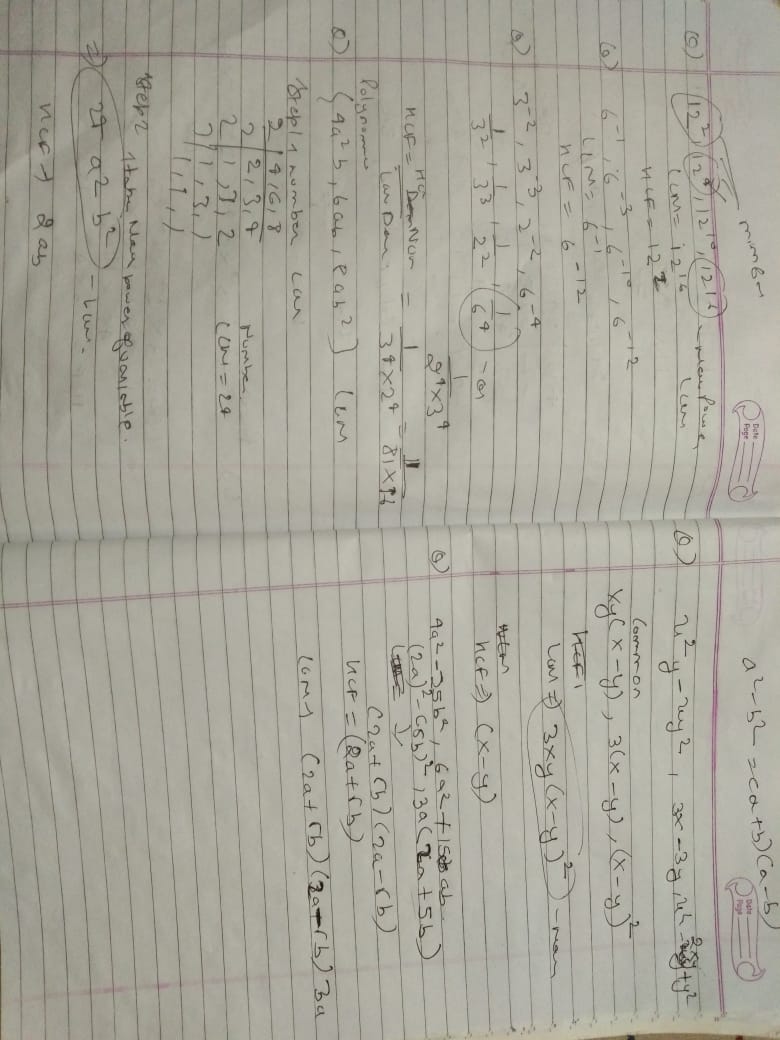 Date
Page
minimum
Q) 12², 12⁴, 12¹⁰, 12¹⁶ - Max Power LCM
LCM = 12¹⁶
HCF = 12²
Q) 6⁻¹, 6⁻³, 6⁻¹⁰, 6⁻¹²
LCM = 6⁻¹
HCF = 6⁻¹²
Q) 3⁻², 3⁻³, 2⁻², 6⁻⁴
1/3², 1/3³, 1/2², 1/6⁴
1/2⁴×3⁴
HCF = Num / LCM Den. = 1/3⁴×2⁴ = 1/81×16
Polynomial
Q) {4a²b, 6ab, 8ab²} LCM
Step 1 Number LCM
2 | 4, 6, 8
2 | 2, 3, 4
2 | 1, 3, 2
3 | 1, 3, 1
1, 1, 1
Number
LCM = 24
Step 2 take Max power of variable.
⇒ 24 a² b² - LCM.
HCF → 2ab
Date
Page
a² - b² = (a+b)(a-b)
Q) x²y - xy², 3x - 3y, x² - 2xy + y²
Common
xy(x-y), 3(x-y), (x-y)²
HCF
LCM ⇒ 3xy(x-y)² - max
HCF ⇒ (x-y)
Q) 4a² - 25b², 6a² + 15ab
(2a)² - (5b)², 3a(2a+5b)
(2a+5b)(2a-5b)
HCF = (2a+5b)
LCM → (2a+5b)(2a-5b)3a